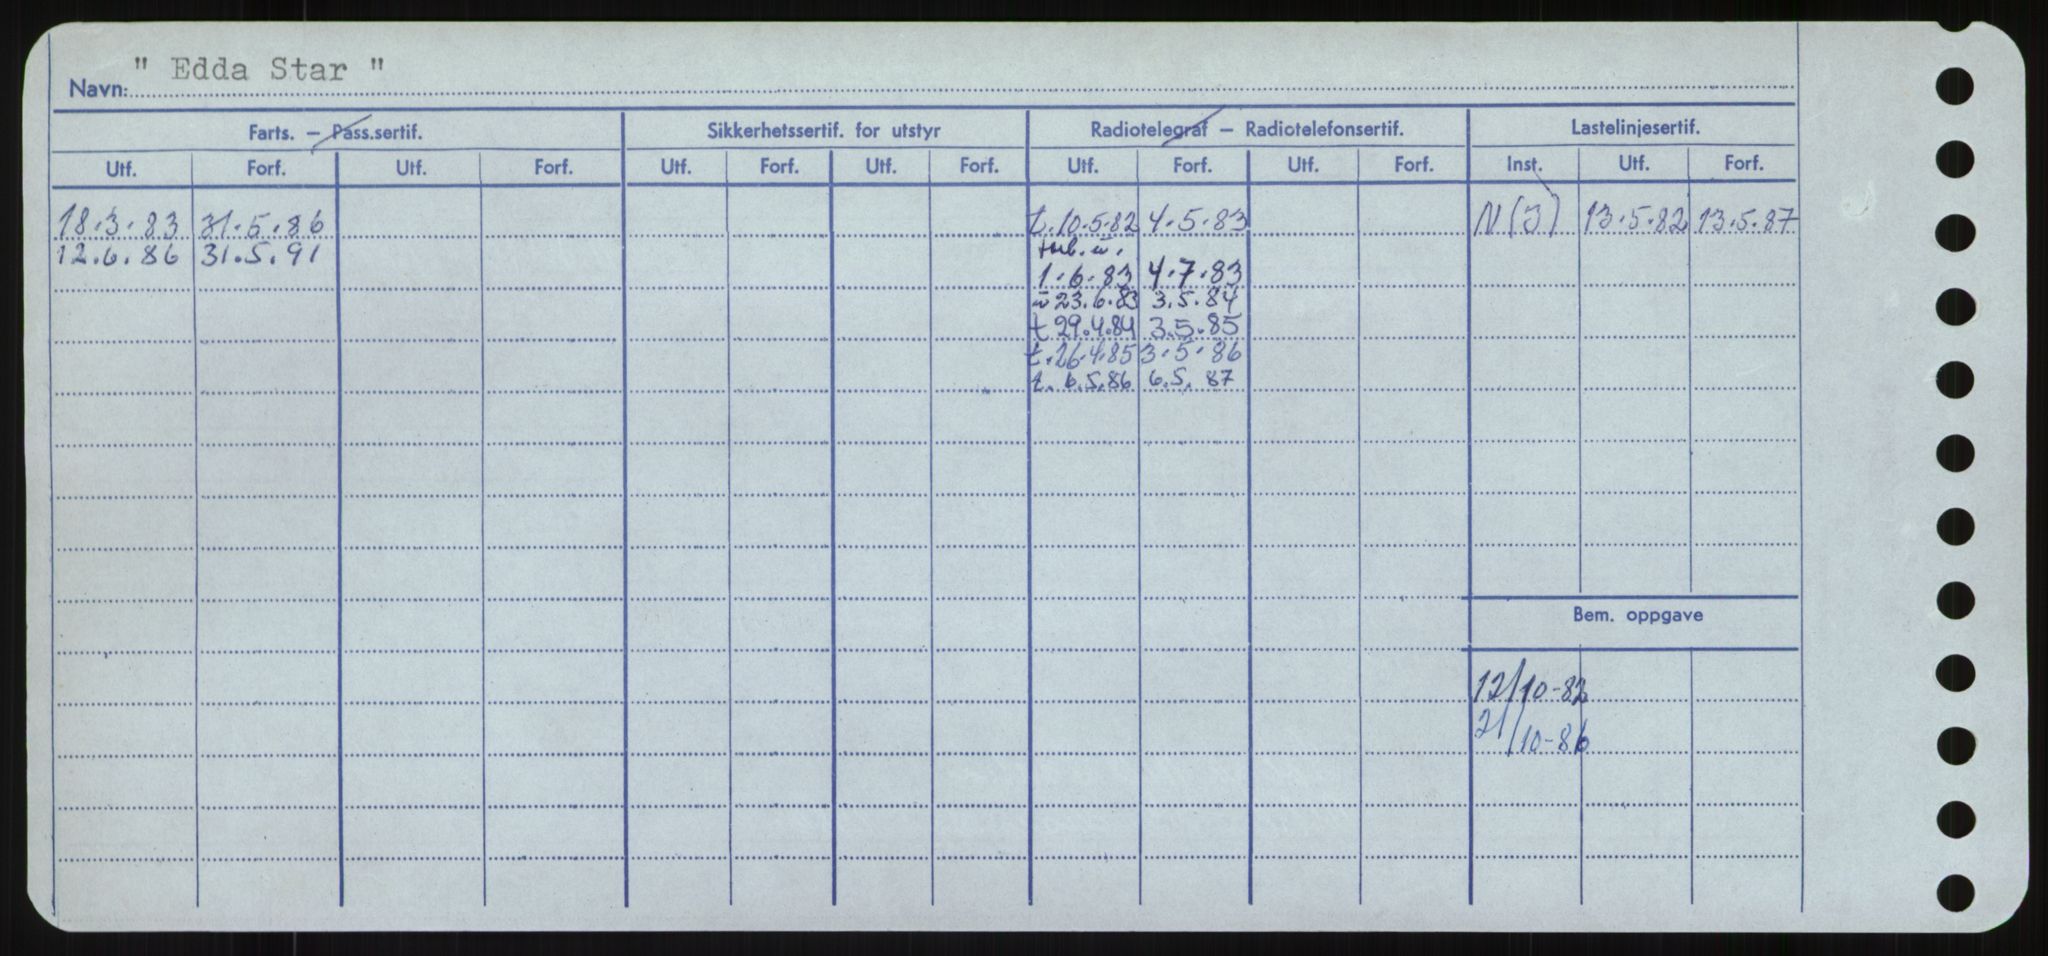 Navn: " Edda Star "
Farts. – Pass.sertif. Sikkerhetssertif. for utstyr Radiotelegraf – Radiotelefonsertif. Lastelinjesertif.
Utf. Forf. Utf. Forf. Utf. Forf. Utf. Forf. Utf. Forf. Utf. Forf. Inst. Utf. Forf.
18.3.83 31.5.86 t.10.5.82 4.5.83 N(J) 13.5.82 13.5.87
12.6.86 31.5.91
1.6.83 4.7.83
23.6.83 3.5.84
t 29.4.84 3.5.85
t.26.4.85 3.5.86
t. 6.5.86 6.5.87
Bem. oppgave
12/10-82
21/10-86